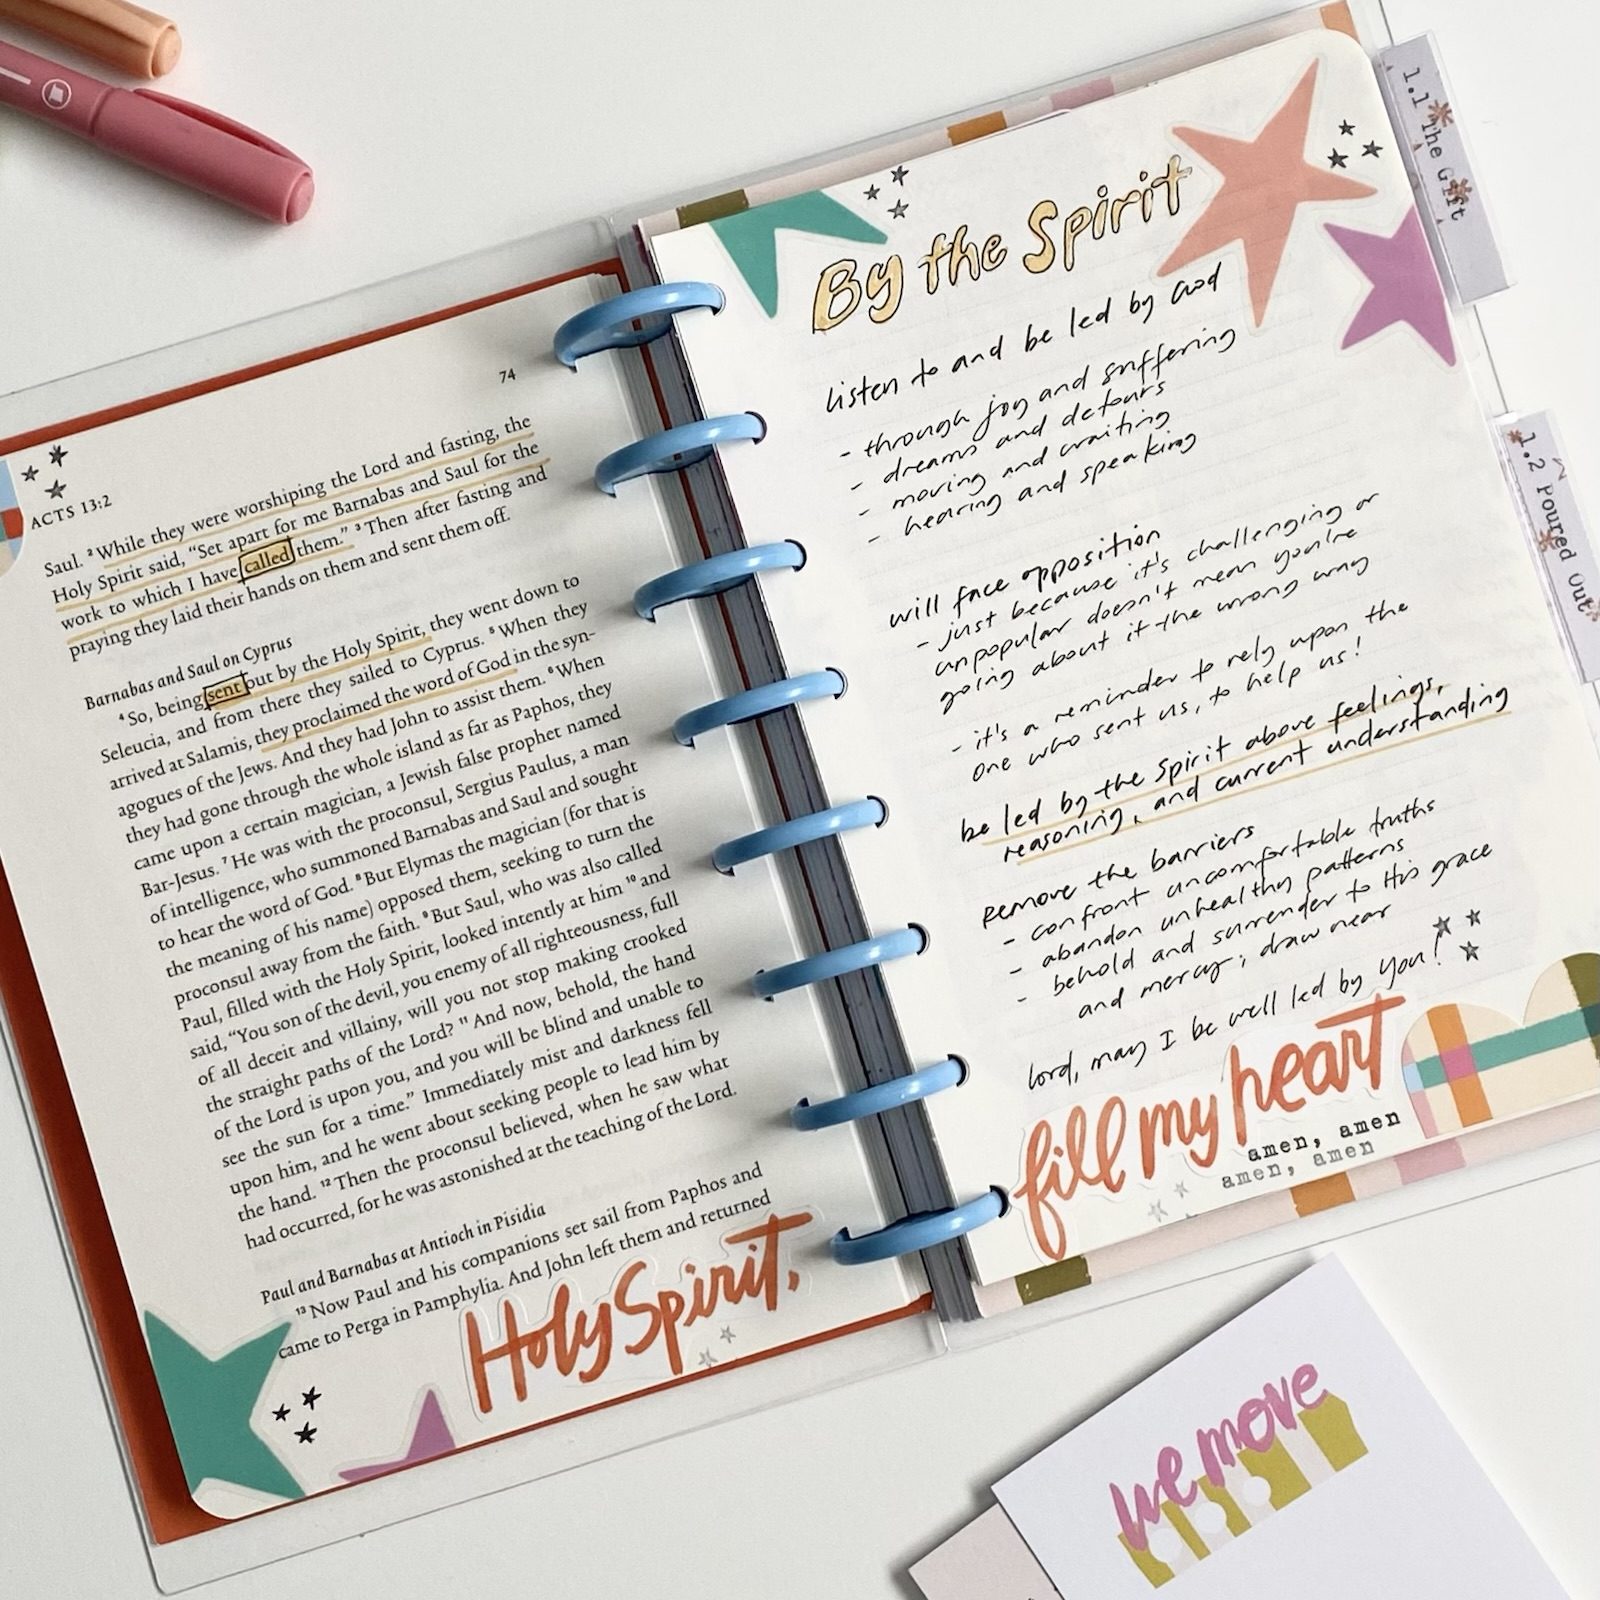 74
ACTS 13:2
Saul. ² While they were worshiping the Lord and fasting, the
Holy Spirit said, “Set apart for me Barnabas and Saul for the
work to which I have called them.” ³ Then after fasting and
praying they laid their hands on them and sent them off.
Barnabas and Saul on Cyprus
⁴ So, being sent out by the Holy Spirit, they went down to
Seleucia, and from there they sailed to Cyprus. ⁵ When they
arrived at Salamis, they proclaimed the word of God in the syn-
agogues of the Jews. And they had John to assist them. ⁶ When
they had gone through the whole island as far as Paphos, they
came upon a certain magician, a Jewish false prophet named
Bar-Jesus. ⁷ He was with the proconsul, Sergius Paulus, a man
of intelligence, who summoned Barnabas and Saul and sought
to hear the word of God. ⁸ But Elymas the magician (for that is
the meaning of his name) opposed them, seeking to turn the
proconsul away from the faith. ⁹ But Saul, who was also called
Paul, filled with the Holy Spirit, looked intently at him ¹⁰ and
said, “You son of the devil, you enemy of all righteousness, full
of all deceit and villainy, will you not stop making crooked
the straight paths of the Lord? ¹¹ And now, behold, the hand
of the Lord is upon you, and you will be blind and unable to
see the sun for a time.” Immediately mist and darkness fell
upon him, and he went about seeking people to lead him by
the hand. ¹² Then the proconsul believed, when he saw what
had occurred, for he was astonished at the teaching of the Lord.
Paul and Barnabas at Antioch in Pisidia
¹³ Now Paul and his companions set sail from Paphos and
came to Perga in Pamphylia. And John left them and returned
Holy Spirit,
By the Spirit
listen to and be led by God
- through joy and suffering
- dreams and detours
- moving and waiting
- hearing and speaking
will face opposition
- just because it's challenging or
unpopular doesn't mean you're
going about it the wrong way
- it's a reminder to rely upon the
one who sent us, to help us!
be led by the Spirit above feelings,
reasoning, and current understanding
remove the barriers
- confront uncomfortable truths
- abandon unhealthy patterns
- behold and surrender to His grace
and mercy; draw near
lord, may I be well led by You!
fill my heart
amen, amen
amen, amen
1.1 The Gift
1.2 Poured Out
we move